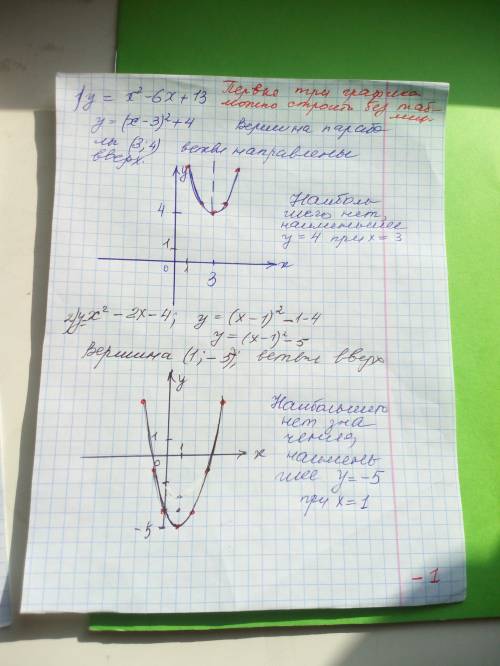 1) y = x² - 6x + 13
Первые три графика
можно строить без таб-
лиц.
y = (x - 3)² + 4 Вершина парабо
лы (3, 4) ветви направлены
вверх.
y
4
1
0 1 3 x
Наиболь
шего нет,
наименьшее
y = 4 при x = 3
2) y = x² - 2x - 4; y = (x - 1)² - 1 - 4
y = (x - 1)² - 5
Вершина (1; -5), ветви вверх
y
1
0 1 x
-5
Наибольшего
нет зна
чения,
наимень
шее y = -5
при x = 1
- 1